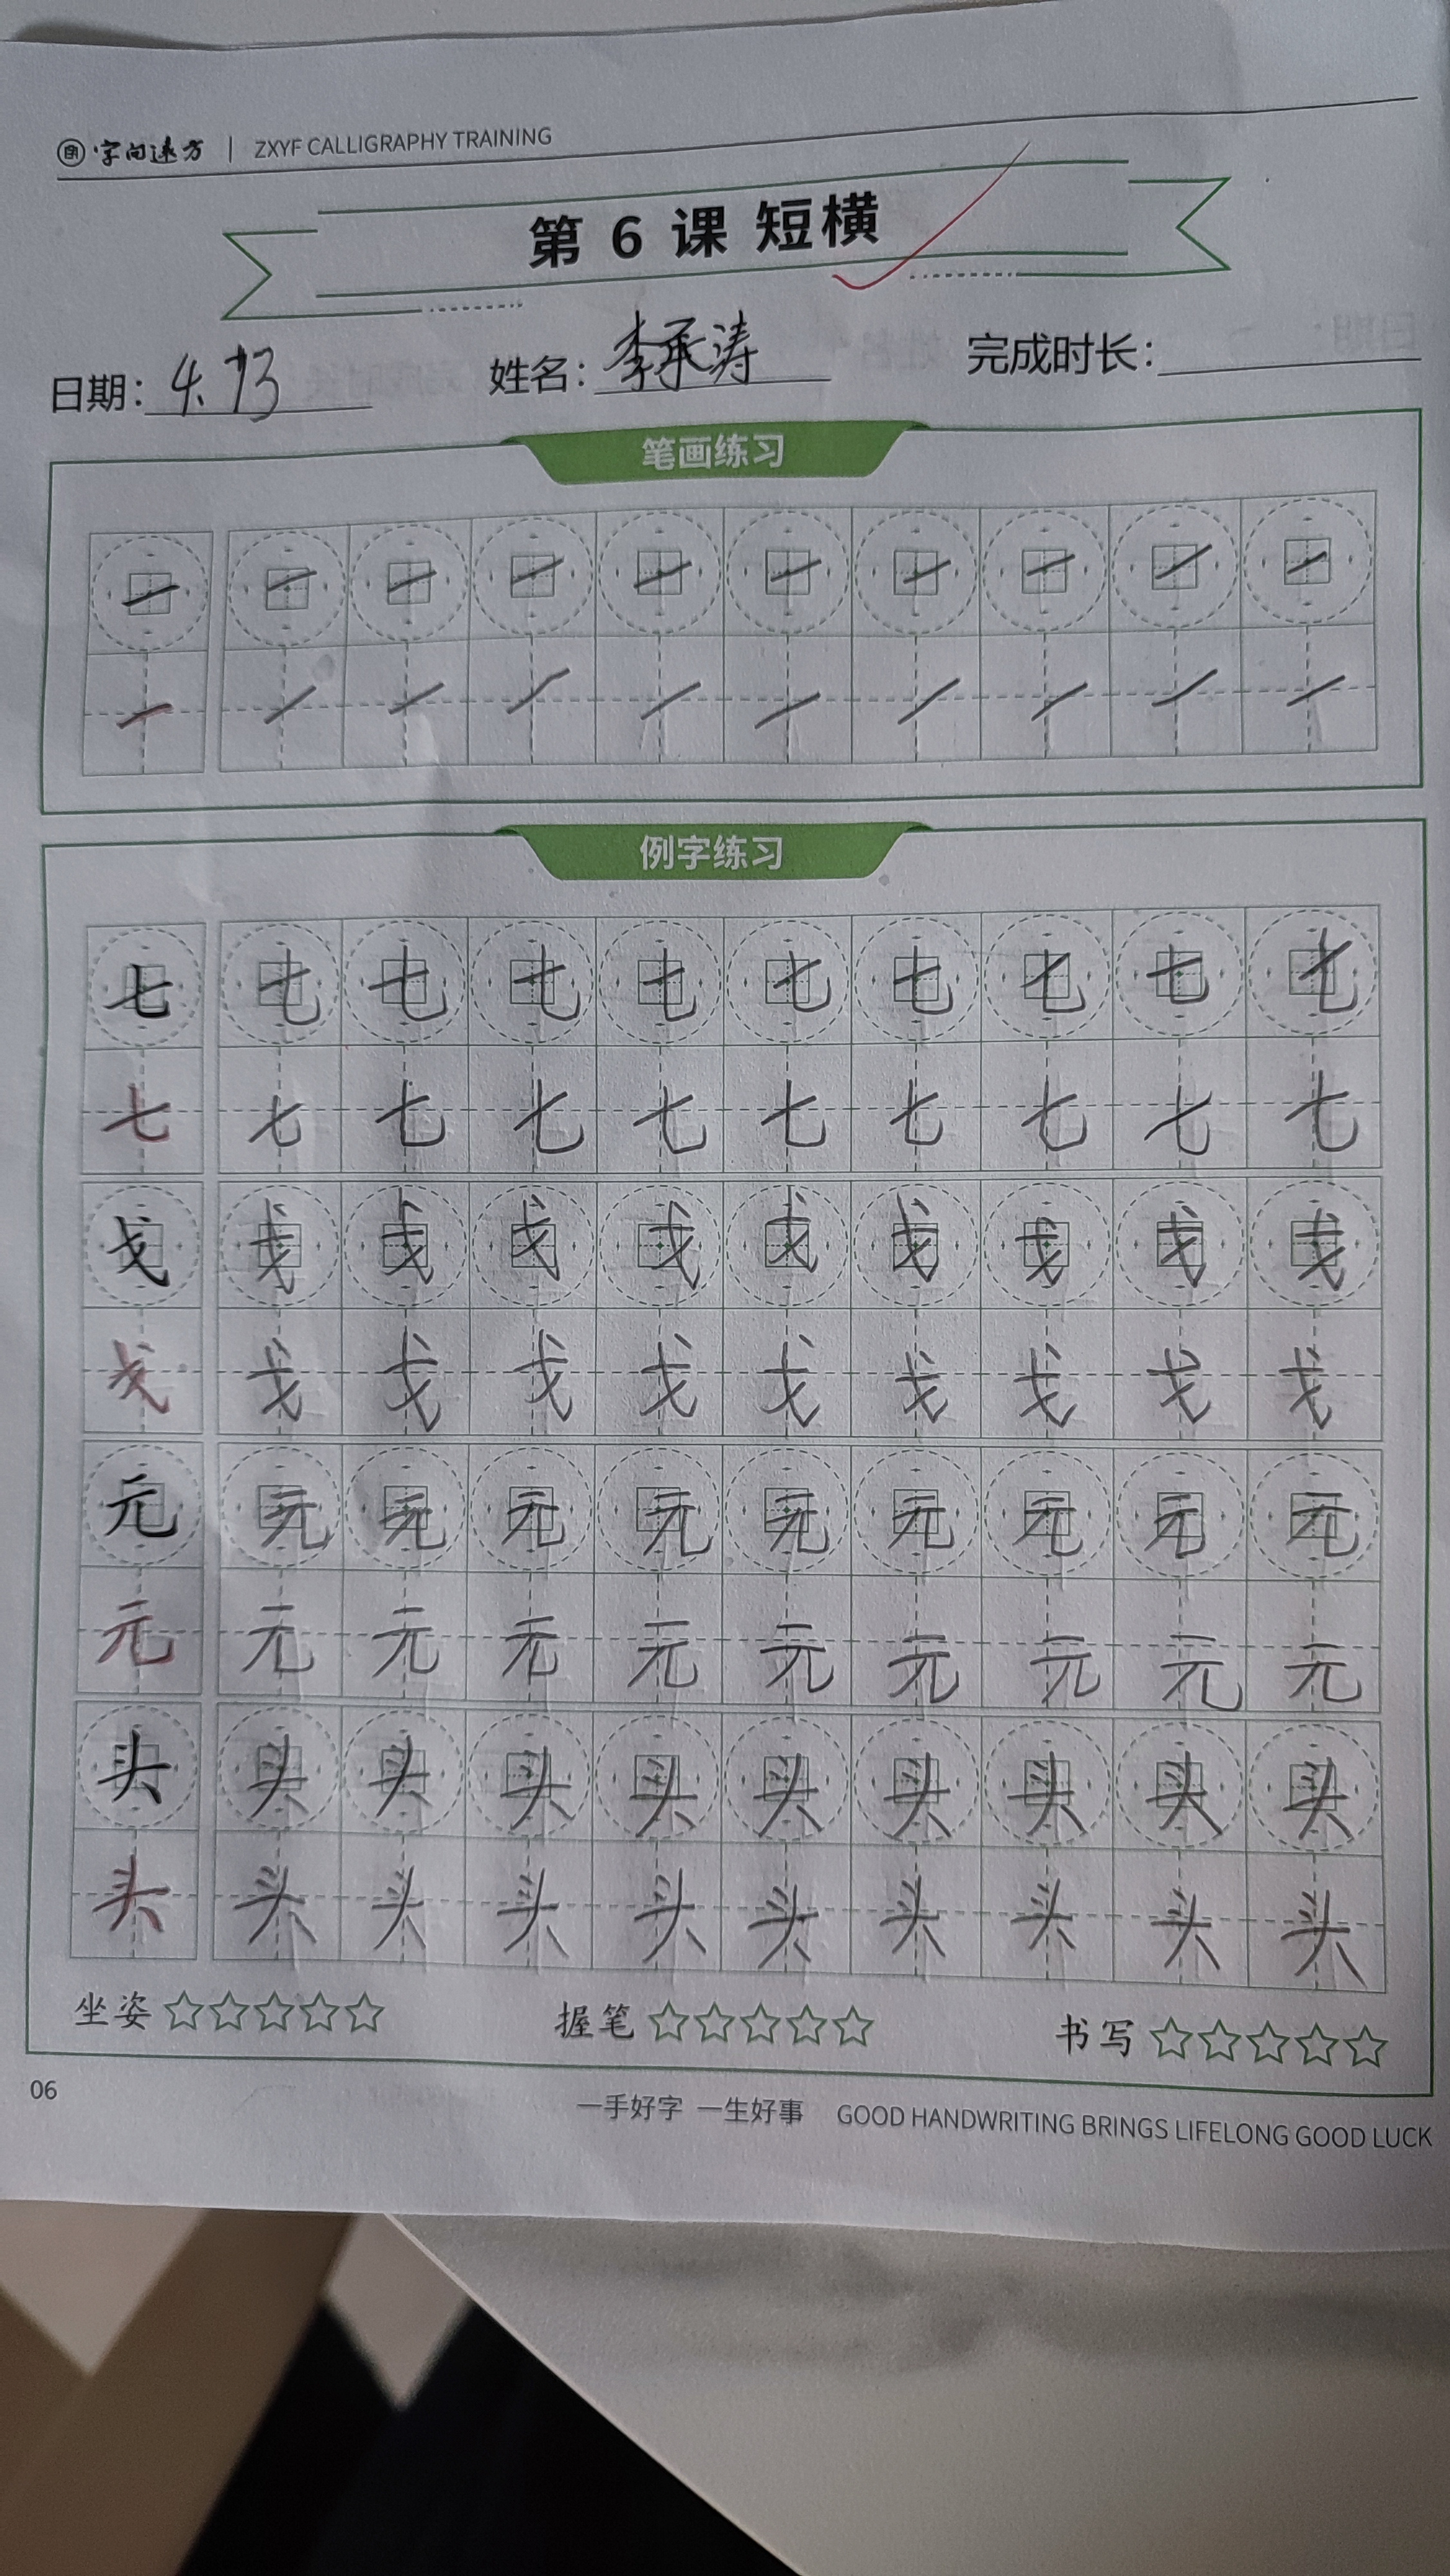 字向远方 | ZXYF CALLIGRAPHY TRAINING
第 6 课 短横
日期: 4.13 姓名: 李承涛 完成时长:
笔画练习
一 一 一 一 一 一 一 一 一 一
一 一 一 一 一 一 一 一 一 一
例字练习
七 七 七 七 七 七 七 七 七 七
七 七 七 七 七 七 七 七 七 七
戈 戈 戈 戈 戈 戈 戈 戈 戈 戈
戈 戈 戈 戈 戈 戈 戈 戈 戈 戈
元 元 元 元 元 元 元 元 元 元
元 元 元 元 元 元 元 元 元 元
头 头 头 头 头 头 头 头 头 头
头 头 头 头 头 头 头 头 头 头
坐姿 ☆☆☆☆☆ 握笔 ☆☆☆☆☆ 书写 ☆☆☆☆☆
06
一手好字 一生好事 GOOD HANDWRITING BRINGS LIFELONG GOOD LUCK